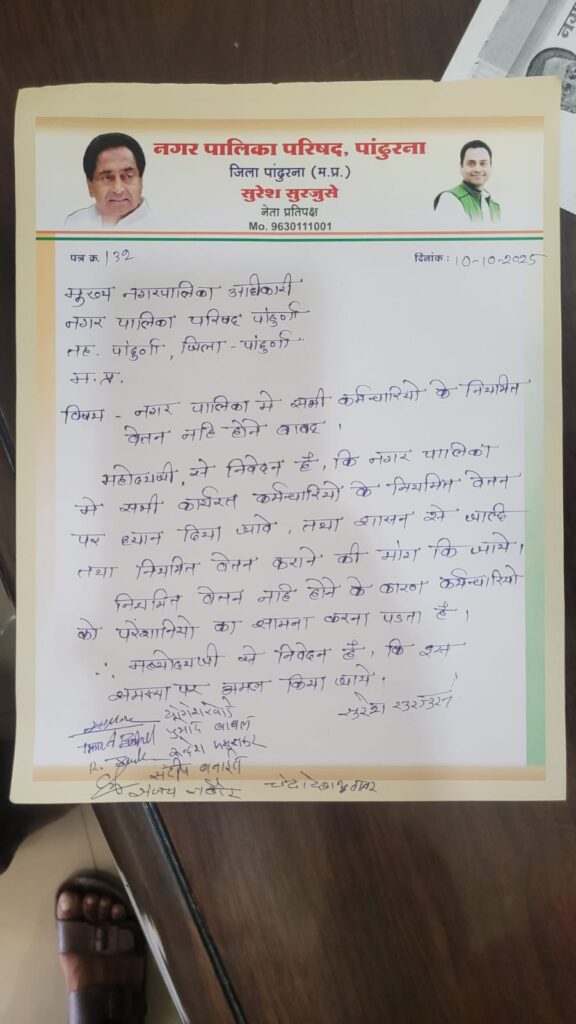 नगर पालिका परिषद, पांढुरना
जिला पांढुरना (म.प्र.)
सुरेश सुरजुसे
नेता प्रतिपक्ष
Mo. 9630111001
पत्र क्र. 132
दिनांक : 10-10-2025
मुख्य नगरपालिका अधिकारी
नगर पालिका परिषद पांढुर्णा
तह. पांढुर्णा, जिला - पांढुर्णा
म.प्र.
विषय - नगर पालिका मे सभी कर्मचारियो के नियमित
वेतन नहि होने बाबद ।
महोदयजी, से निवेदन है, कि नगर पालिका
मे सभी कार्यरत कर्मचारियो के नियमित वेतन
पर ध्यान दिया जावे, तथा शासन से जल्द
तथा नियमित वेतन कराने की मांग कि जाये।
नियमित वेतन नहि होने के कारण कर्मचारियो
को परेशानियो का सामना करना पडता है ।
∴ महोदयजी से निवेदन है, कि इस
समस्या पर अमल किया जाये।
सुरेश सुरजुसे
प्रमोद
संदीप
अजय